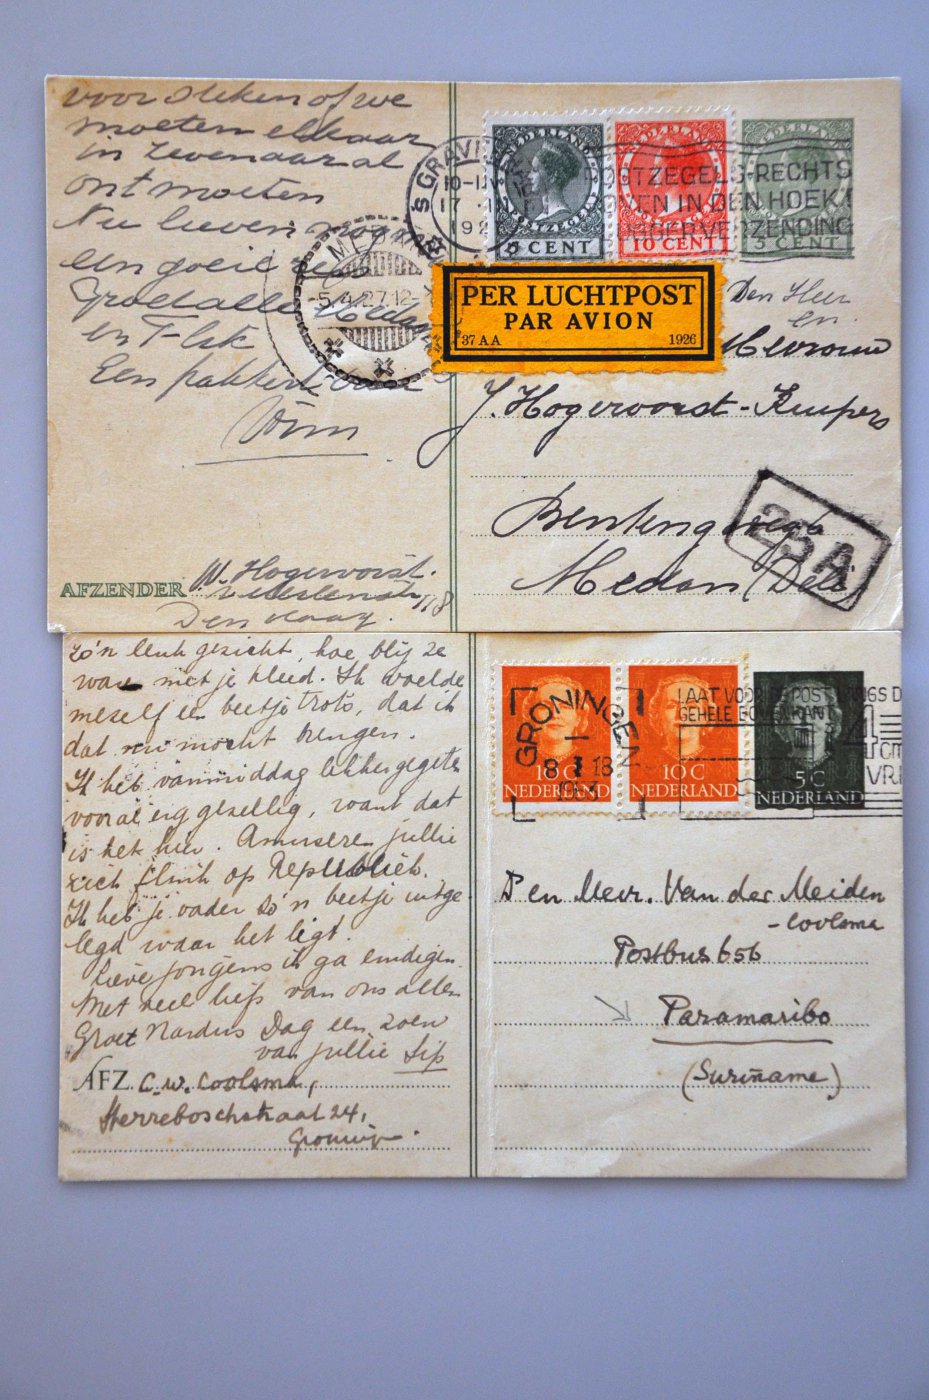 voor steken of we
moeten elkaar
in Zevenaar al
ontmoeten
Nu lieven
een goeie
Groet alle
en F
Een pakkerd van
Wim
AFZENDER W. Hogervorst.
118
Den Haag.
S GRAVEN
10-11
17
192
POSTZEGELS RECHTS
BOVEN IN DEN HOEK
VERZENDING
NEDERLAND
5 CENT
NEDERLAND
POSTZEGEL
10 CENT
NEDERLAND
5 CENT
MEDAN
5.4.27.12-
PER LUCHTPOST
PAR AVION
37 AA 1926
Den Heer
en
Mevrouw
J. Hogervorst-Kuipers
Bentengweg
Medan (Deli)
25A
zo'n leuk gezicht, hoe blij ze
was met je kleed. Ik voelde
mezelf een beetje trots, dat ik
dat nu mocht brengen.
Ik heb vanmiddag lekker gegeten
vooral erg gezellig, want dat
is het hier. Amuseren jullie
zich flink op Republiek.
Ik heb je vader zo'n beetje uitge-
legd waar het ligt.
Lieve jongens ik ga eindigen.
Met veel liefs van ons allen
Groet Nardus Dag een zoen
van jullie Sip
AFZ. C.W. Coolsma,
Herreboschstraat 24,
Groningen.
GRONINGEN
8 I 18
1953
10 C
NEDERLAND
10 C
NEDERLAND
5 C
NEDERLAND
LAAT VOOR DE POST LANGS DE
GEHELE BOVENKANT
4
cm
VRIJ
D en Mevr. Van der Meiden
- Coolsma
Postbus 656
Paramaribo
(Suriname)